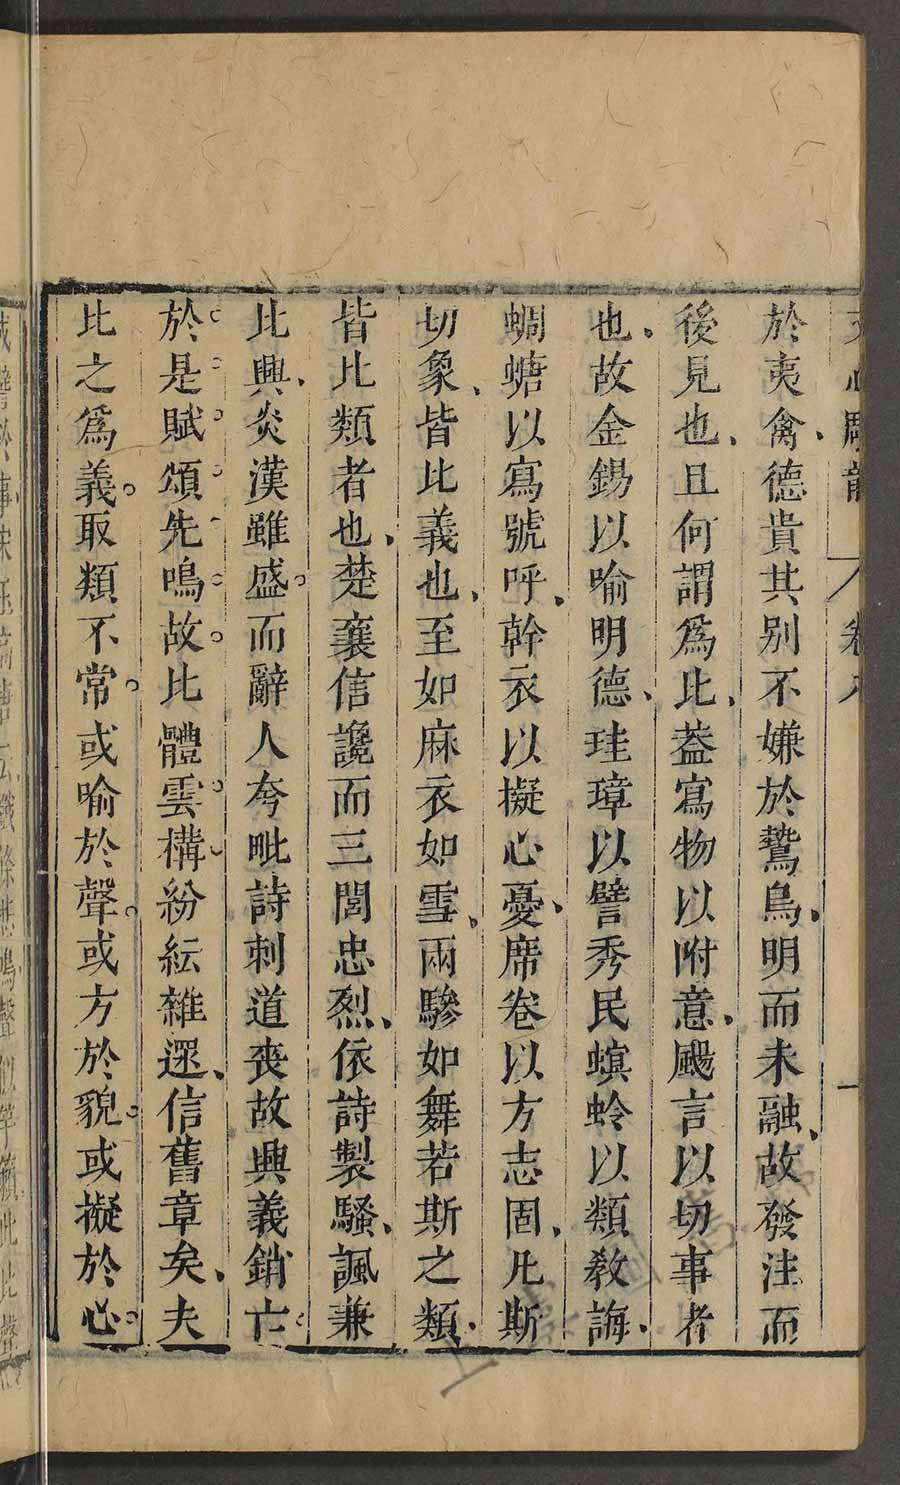 文心雕龍 卷八 一
於夷禽、德貴其別不嫌於鷙鳥、明而未融、故發注而
後見也、且何謂爲比、葢寫物以附意、颺言以切事者
也、故金錫以喻明德、珪璋以譬秀民螟蛉以類教誨、
蜩螗以寫號呼、幹衣以擬心憂、席卷以方志固、凡斯
切象、皆比義也、至如麻衣如雪、兩驂如舞若斯之類、
皆比類者也、楚襄信讒而三閭忠烈、依詩製騷、諷兼
比興、炎漢雖盛。而辭人夸毗詩刺道喪故興義銷亡。
於。是。賦。頌。先。鳴。故。比體雲。構、紛紜雜遝、信舊章矣、夫
比之爲義。取類不常。或喻於聲。或方於貌。或擬於心。